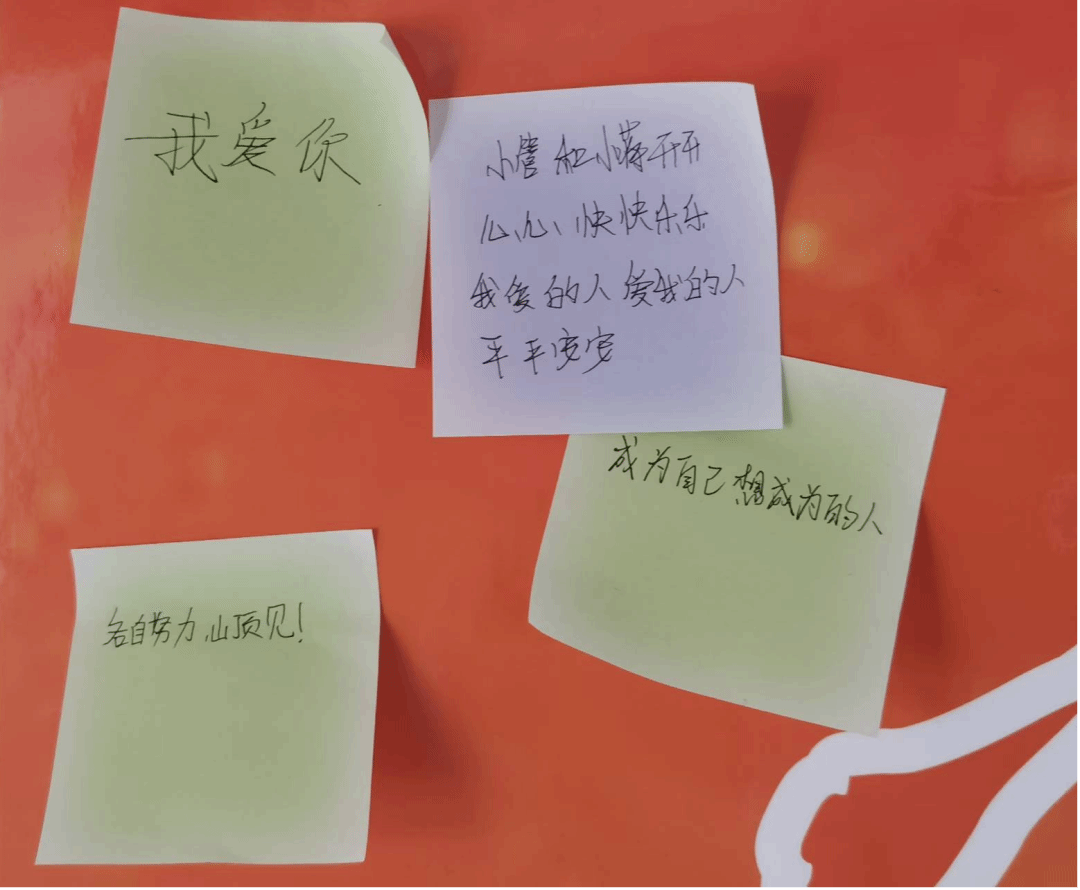 我爱你
小管和小蒋开开
心心、快快乐乐
我爱的人爱我的人
平平安安
成为自己想成为的人
各自努力,山顶见!